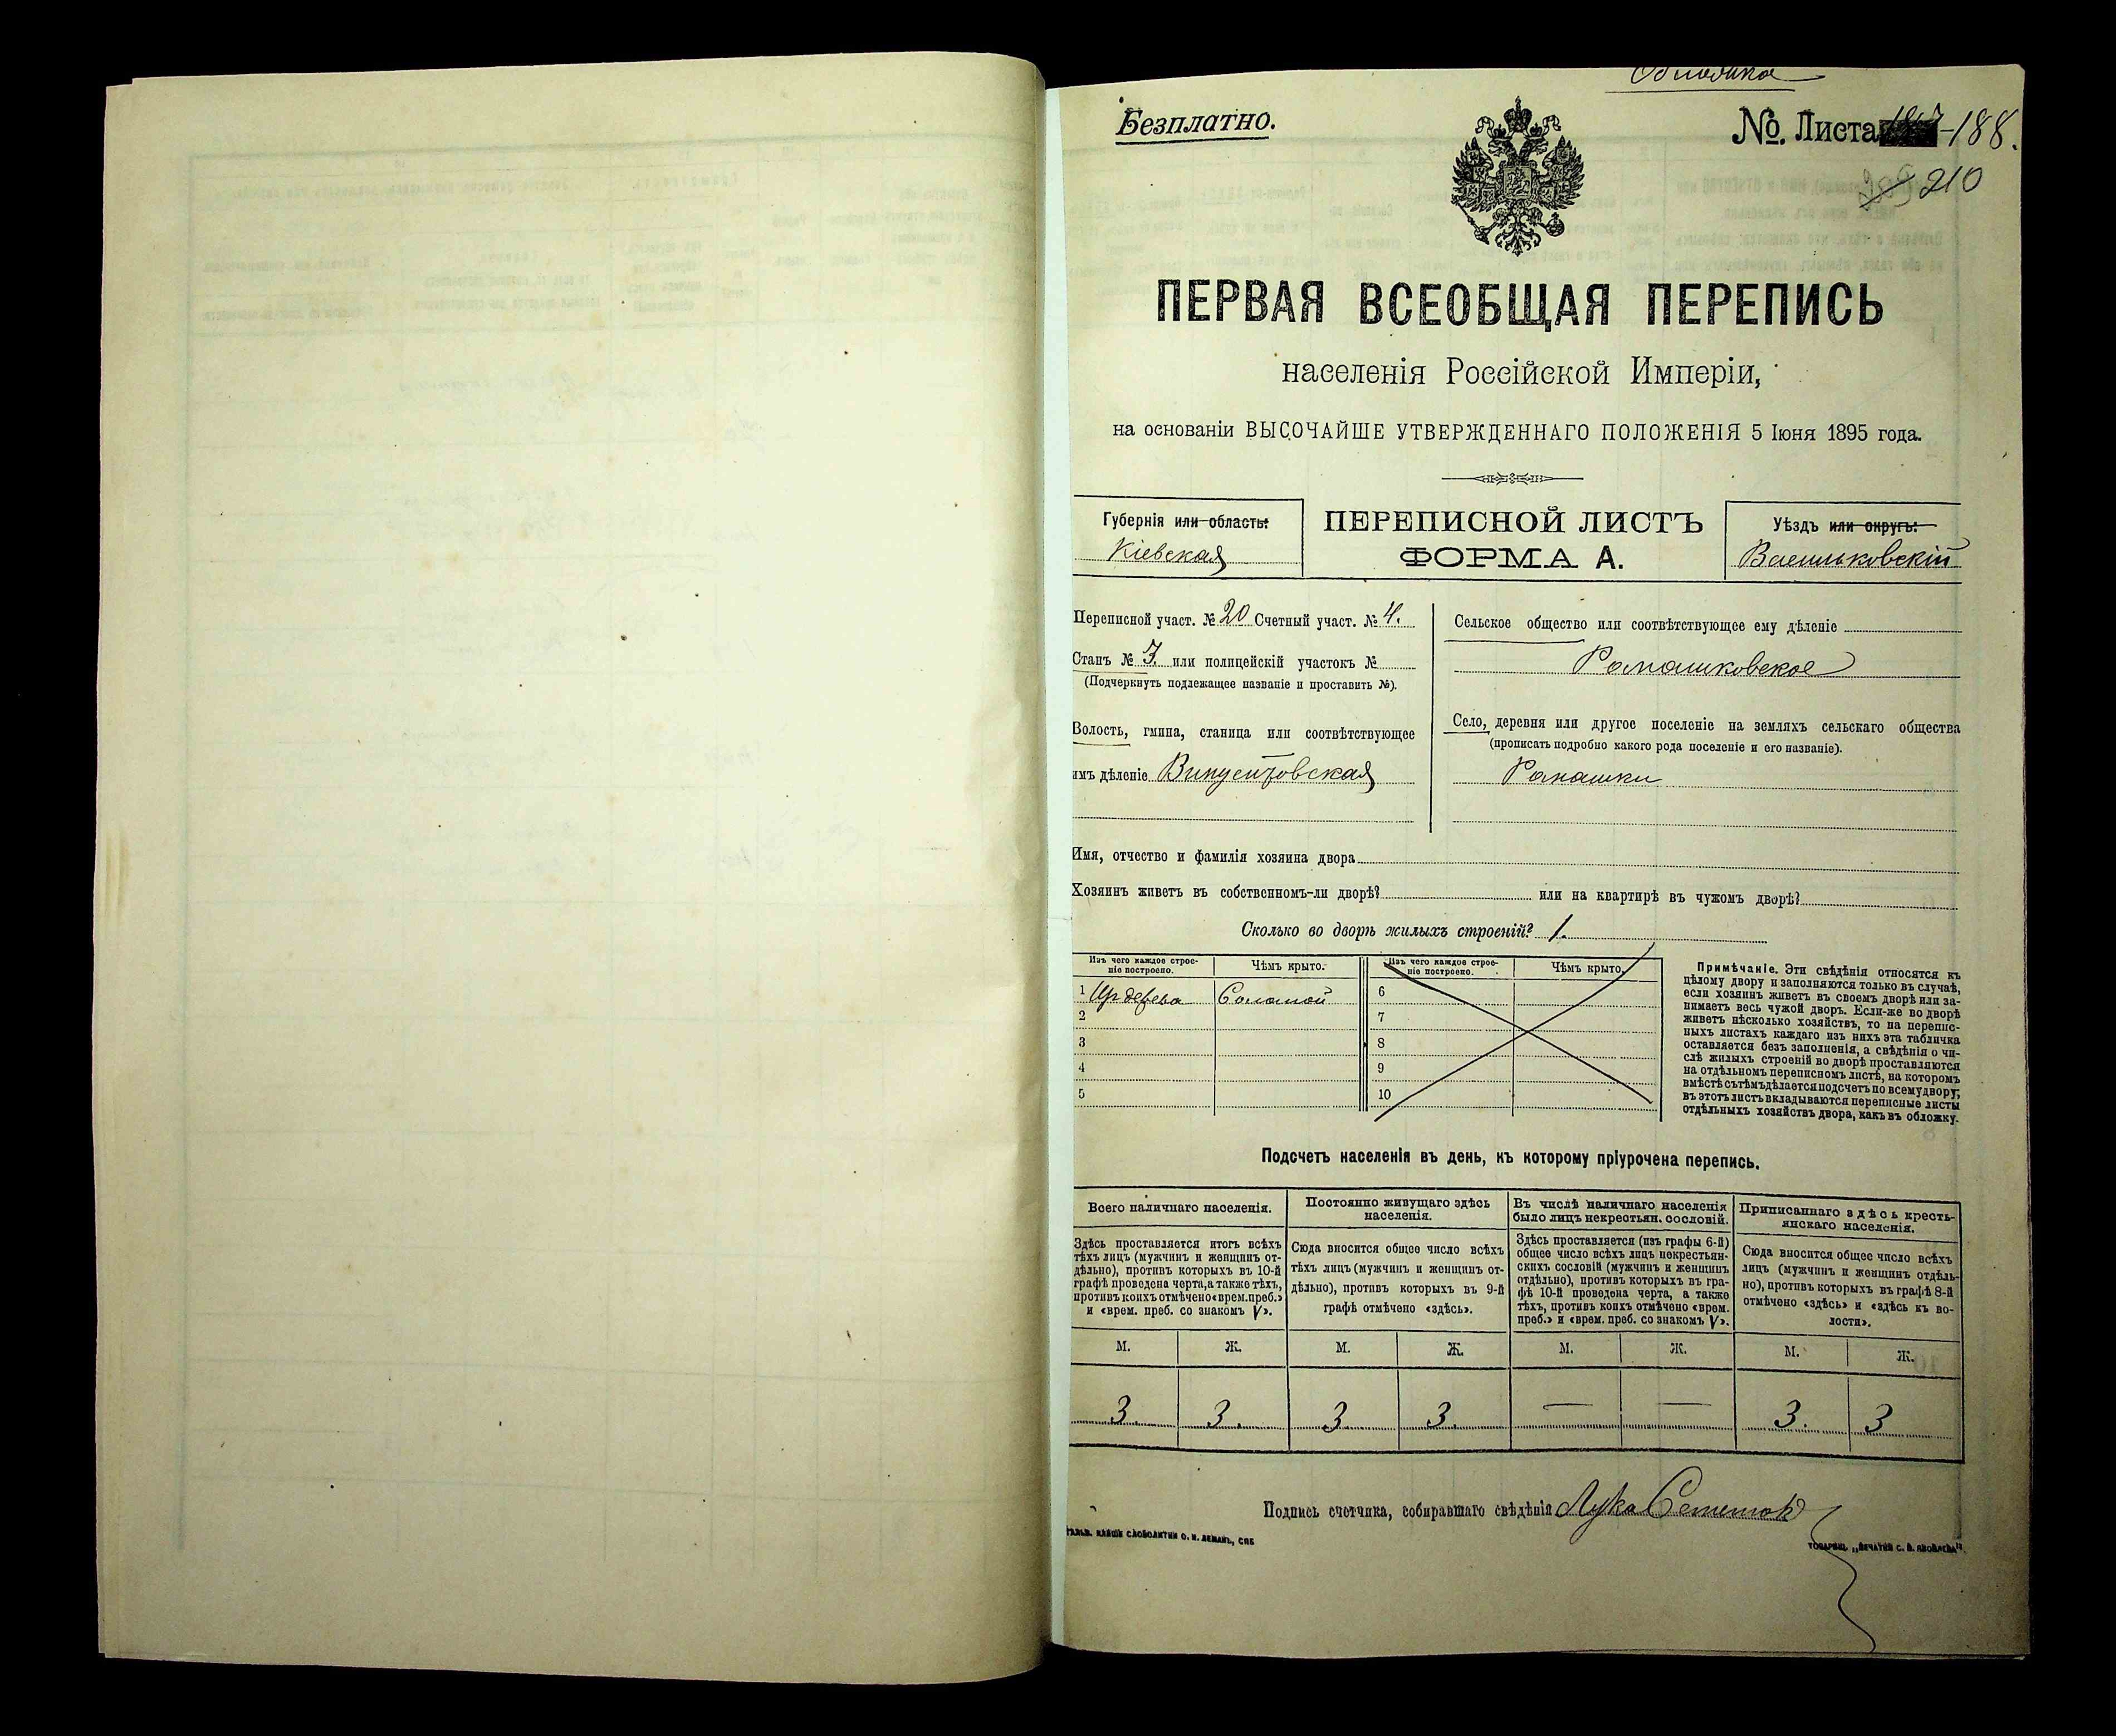 Обложка
Безплатно.
№ Листа 187-188.
210
ПЕРВАЯ ВСЕОБЩАЯ ПЕРЕПИСЬ
населенія Россійской Имперіи,
на основаніи ВЫСОЧАЙШЕ УТВЕРЖДЕННАГО ПОЛОЖЕНІЯ 5 Іюня 1895 года.
Губернія или область:
Кіевская
ПЕРЕПИСНОЙ ЛИСТЪ
ФОРМА А.
Уѣздъ или округъ:
Васильковскій
Переписной участ. № 20 Счетный участ. № 4.
Станъ № 3. или полицейскій участокъ №
(Подчеркнуть подлежащее названіе и проставить №).
Волость, гмина, станица или соотвѣтствующее
имъ дѣленіе Винцентовская
Сельское общество или соотвѣтствующее ему дѣленіе
Ромашковское
Село, деревня или другое поселеніе на земляхъ сельскаго общества
(прописать подробно какого рода поселеніе и его названіе).
Ромашки
Имя, отчество и фамилія хозяина двора
Хозяинъ живетъ въ собственномъ-ли дворѣ? или на квартирѣ въ чужомъ дворѣ?
Сколько во дворѣ жилыхъ строеній? 1.
Изъ чего каждое строе-
ніе построено.
Чѣмъ крыто.
Изъ чего каждое строе-
ніе построено.
Чѣмъ крыто.
1 Изъ дерева Соломой
2
3
4
5
6
7
8
9
10
Примѣчаніе. Эти свѣдѣнія относятся къ
цѣлому двору и заполняются только въ случаѣ,
если хозяинъ живетъ въ своемъ дворѣ или за-
нимаетъ весь чужой дворъ. Если-же во дворѣ
живетъ нѣсколько хозяйствъ, то на перепис-
ныхъ листахъ каждаго изъ нихъ эта табличка
оставляется безъ заполненія, а свѣдѣнія о чи-
слѣ жилыхъ строеній во дворѣ проставляются
на отдѣльномъ переписномъ листѣ, на которомъ
вмѣстѣ съ тѣмъ дѣлается подсчетъ по всему двору;
въ этотъ листъ вкладываются переписные листы
отдѣльныхъ хозяйствъ двора, какъ въ обложку.
Подсчетъ населенія въ день, къ которому пріурочена перепись.
Всего наличнаго населенія.
Здѣсь проставляется итогъ всѣхъ
тѣхъ лицъ (мужчинъ и женщинъ от-
дѣльно), противъ которыхъ въ 10-й
графѣ проведена черта, а также тѣхъ,
противъ коихъ отмѣчено «врем. преб.»
и «врем. преб. со знакомъ V».
Постоянно живущаго здѣсь
населенія.
Сюда вносится общее число всѣхъ
тѣхъ лицъ (мужчинъ и женщинъ от-
дѣльно), противъ которыхъ въ 9-й
графѣ отмѣчено «здѣсь».
Въ числѣ наличнаго населенія
было лицъ некрестьян. сословій.
Здѣсь проставляется (изъ графы 6-й)
общее число всѣхъ лицъ некрестьян-
скихъ сословій (мужчинъ и женщинъ
отдѣльно), противъ которыхъ въ гра-
фѣ 10-й проведена черта, а также
тѣхъ, противъ коихъ отмѣчено «врем.
преб.» и «врем. преб. со знакомъ V».
Приписаннаго здѣсь кресть-
янскаго населенія.
Сюда вносится общее число всѣхъ
лицъ (мужчинъ и женщинъ отдѣль-
но), противъ которыхъ въ графѣ 8-й
отмѣчено «здѣсь» и «здѣсь къ во-
лости».
М. Ж. М. Ж. М. Ж. М. Ж.
3. 3. 3 3. — — 3. 3
Подпись счетчика, собиравшаго свѣдѣнія Лука
СЛОВОЛИТНИ О. И. ЛЕМАНЪ, СПБ
ТОВАРИЩ. „ПЕЧАТНЯ С. П. ЯКОВЛЕВА"